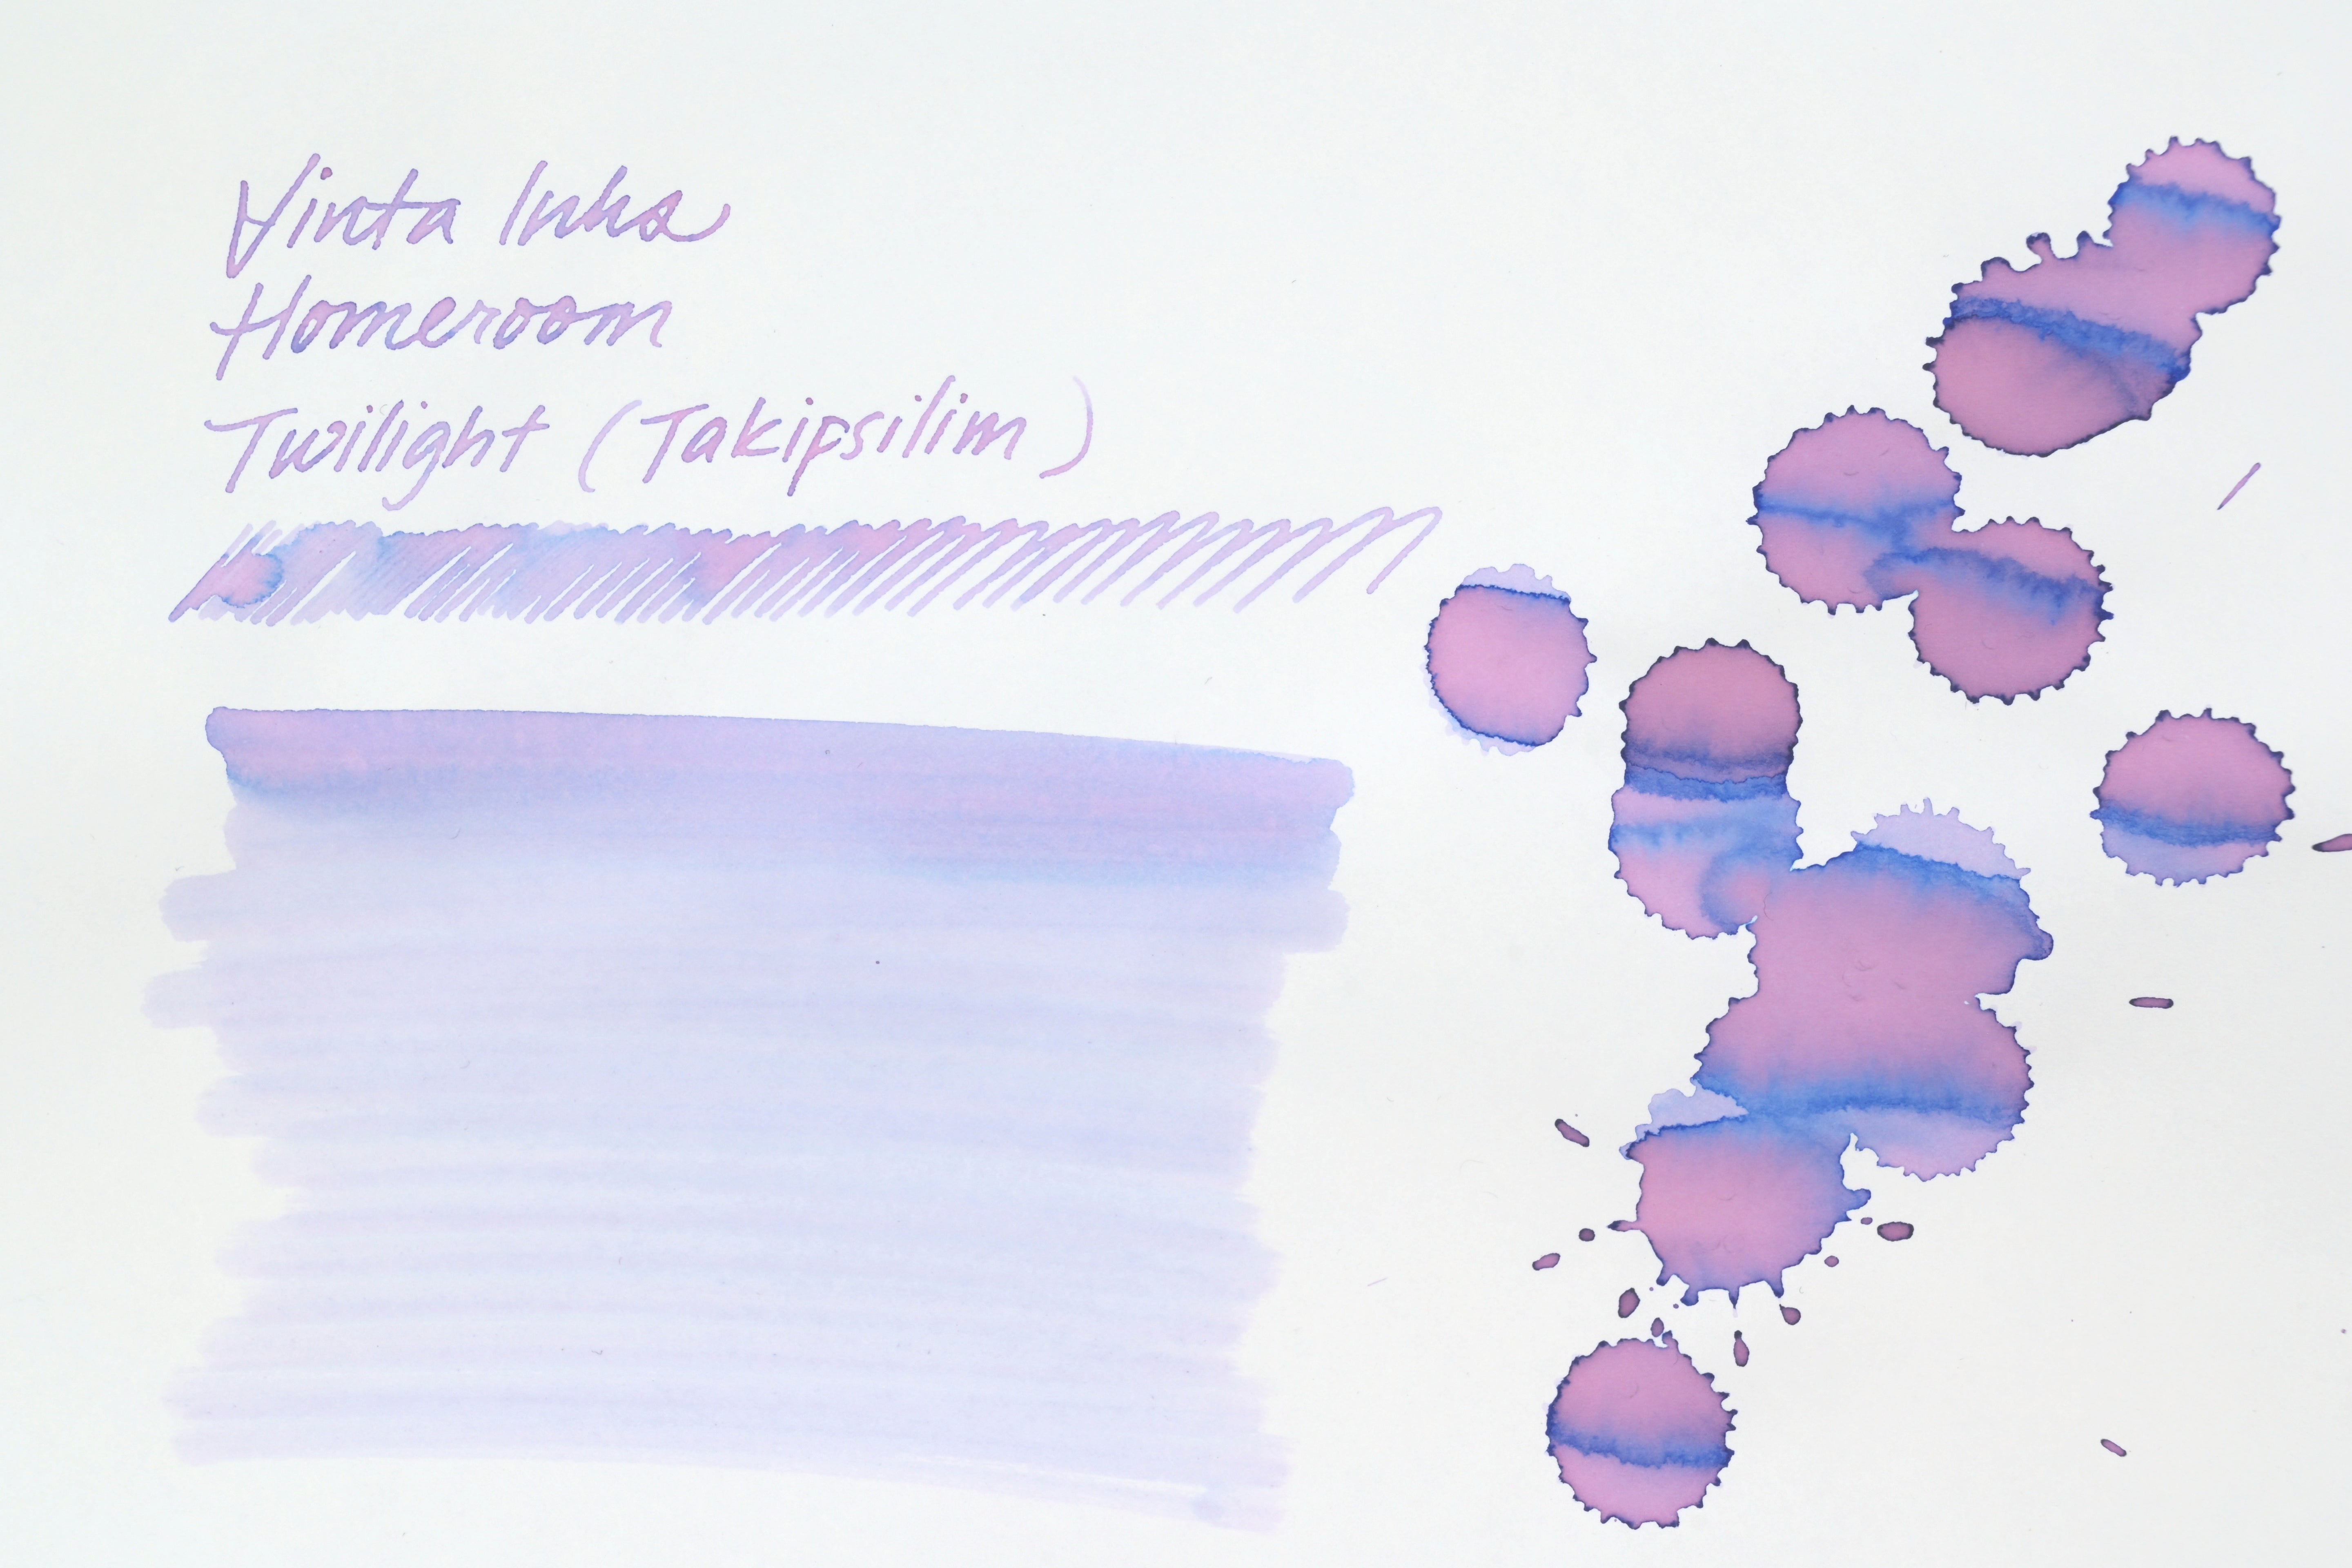 Vinta Inks
Homeroom
Twilight (Takipsilim)